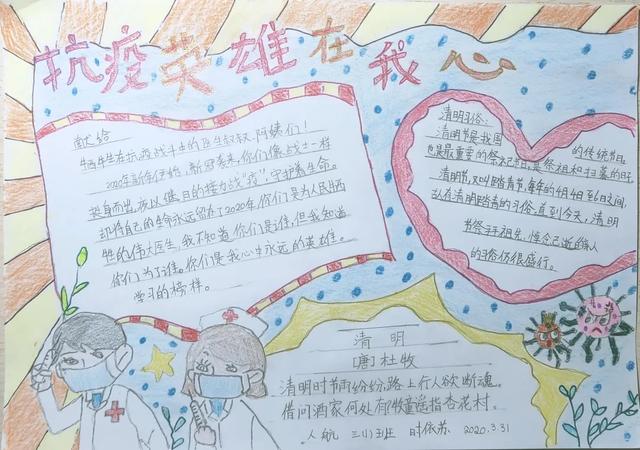 抗疫英雄在我心
献给
牺牲在抗疫战斗士的医生叔叔、阿姨们！
2020年新年伊始，新冠袭来，你们像战士一样
挺身而出，夜以继日的接力战"疫"，守护着生命。
却将自己的生命永远留在了2020年。你们是为人民牺
牲的伟大医生，我不知道你们是谁，但我知道
你们为了谁。你们是我心中永远的英雄。
学习的榜样。
清明习俗：
清明节是我国的传统节日，
也是最重要的祭祀节日，是祭祖和扫墓的日子。
清明节，又叫踏青节，每年的4月4日至6日之间，
清明踏青的习俗，直到今天，清明
节祭拜祖先，悼念已逝的亲人
的习俗仍很盛行。
清明
[唐]杜牧
清明时节雨纷纷，路上行人欲断魂。
借问酒家何处有？牧童遥指杏花村。
人航 三(1)班 时依苏 2020.3.31